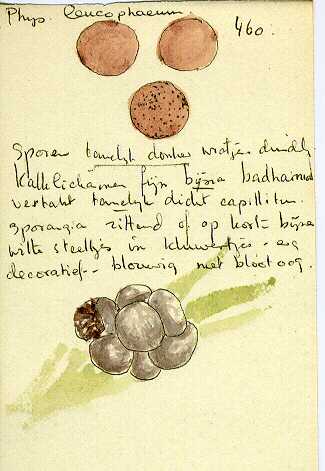 Phys. leucophaeum.
460.
Sporen tamelijk donker wratjes duidelijk
Kalklichamen fijn bijna badhamioid
vertakt tamelijk dicht capillitium.
Sporangia zittend of op korte bijna
witte steeltjes in kluwentjes - erg
decoratief - blauwig met bloot oog.